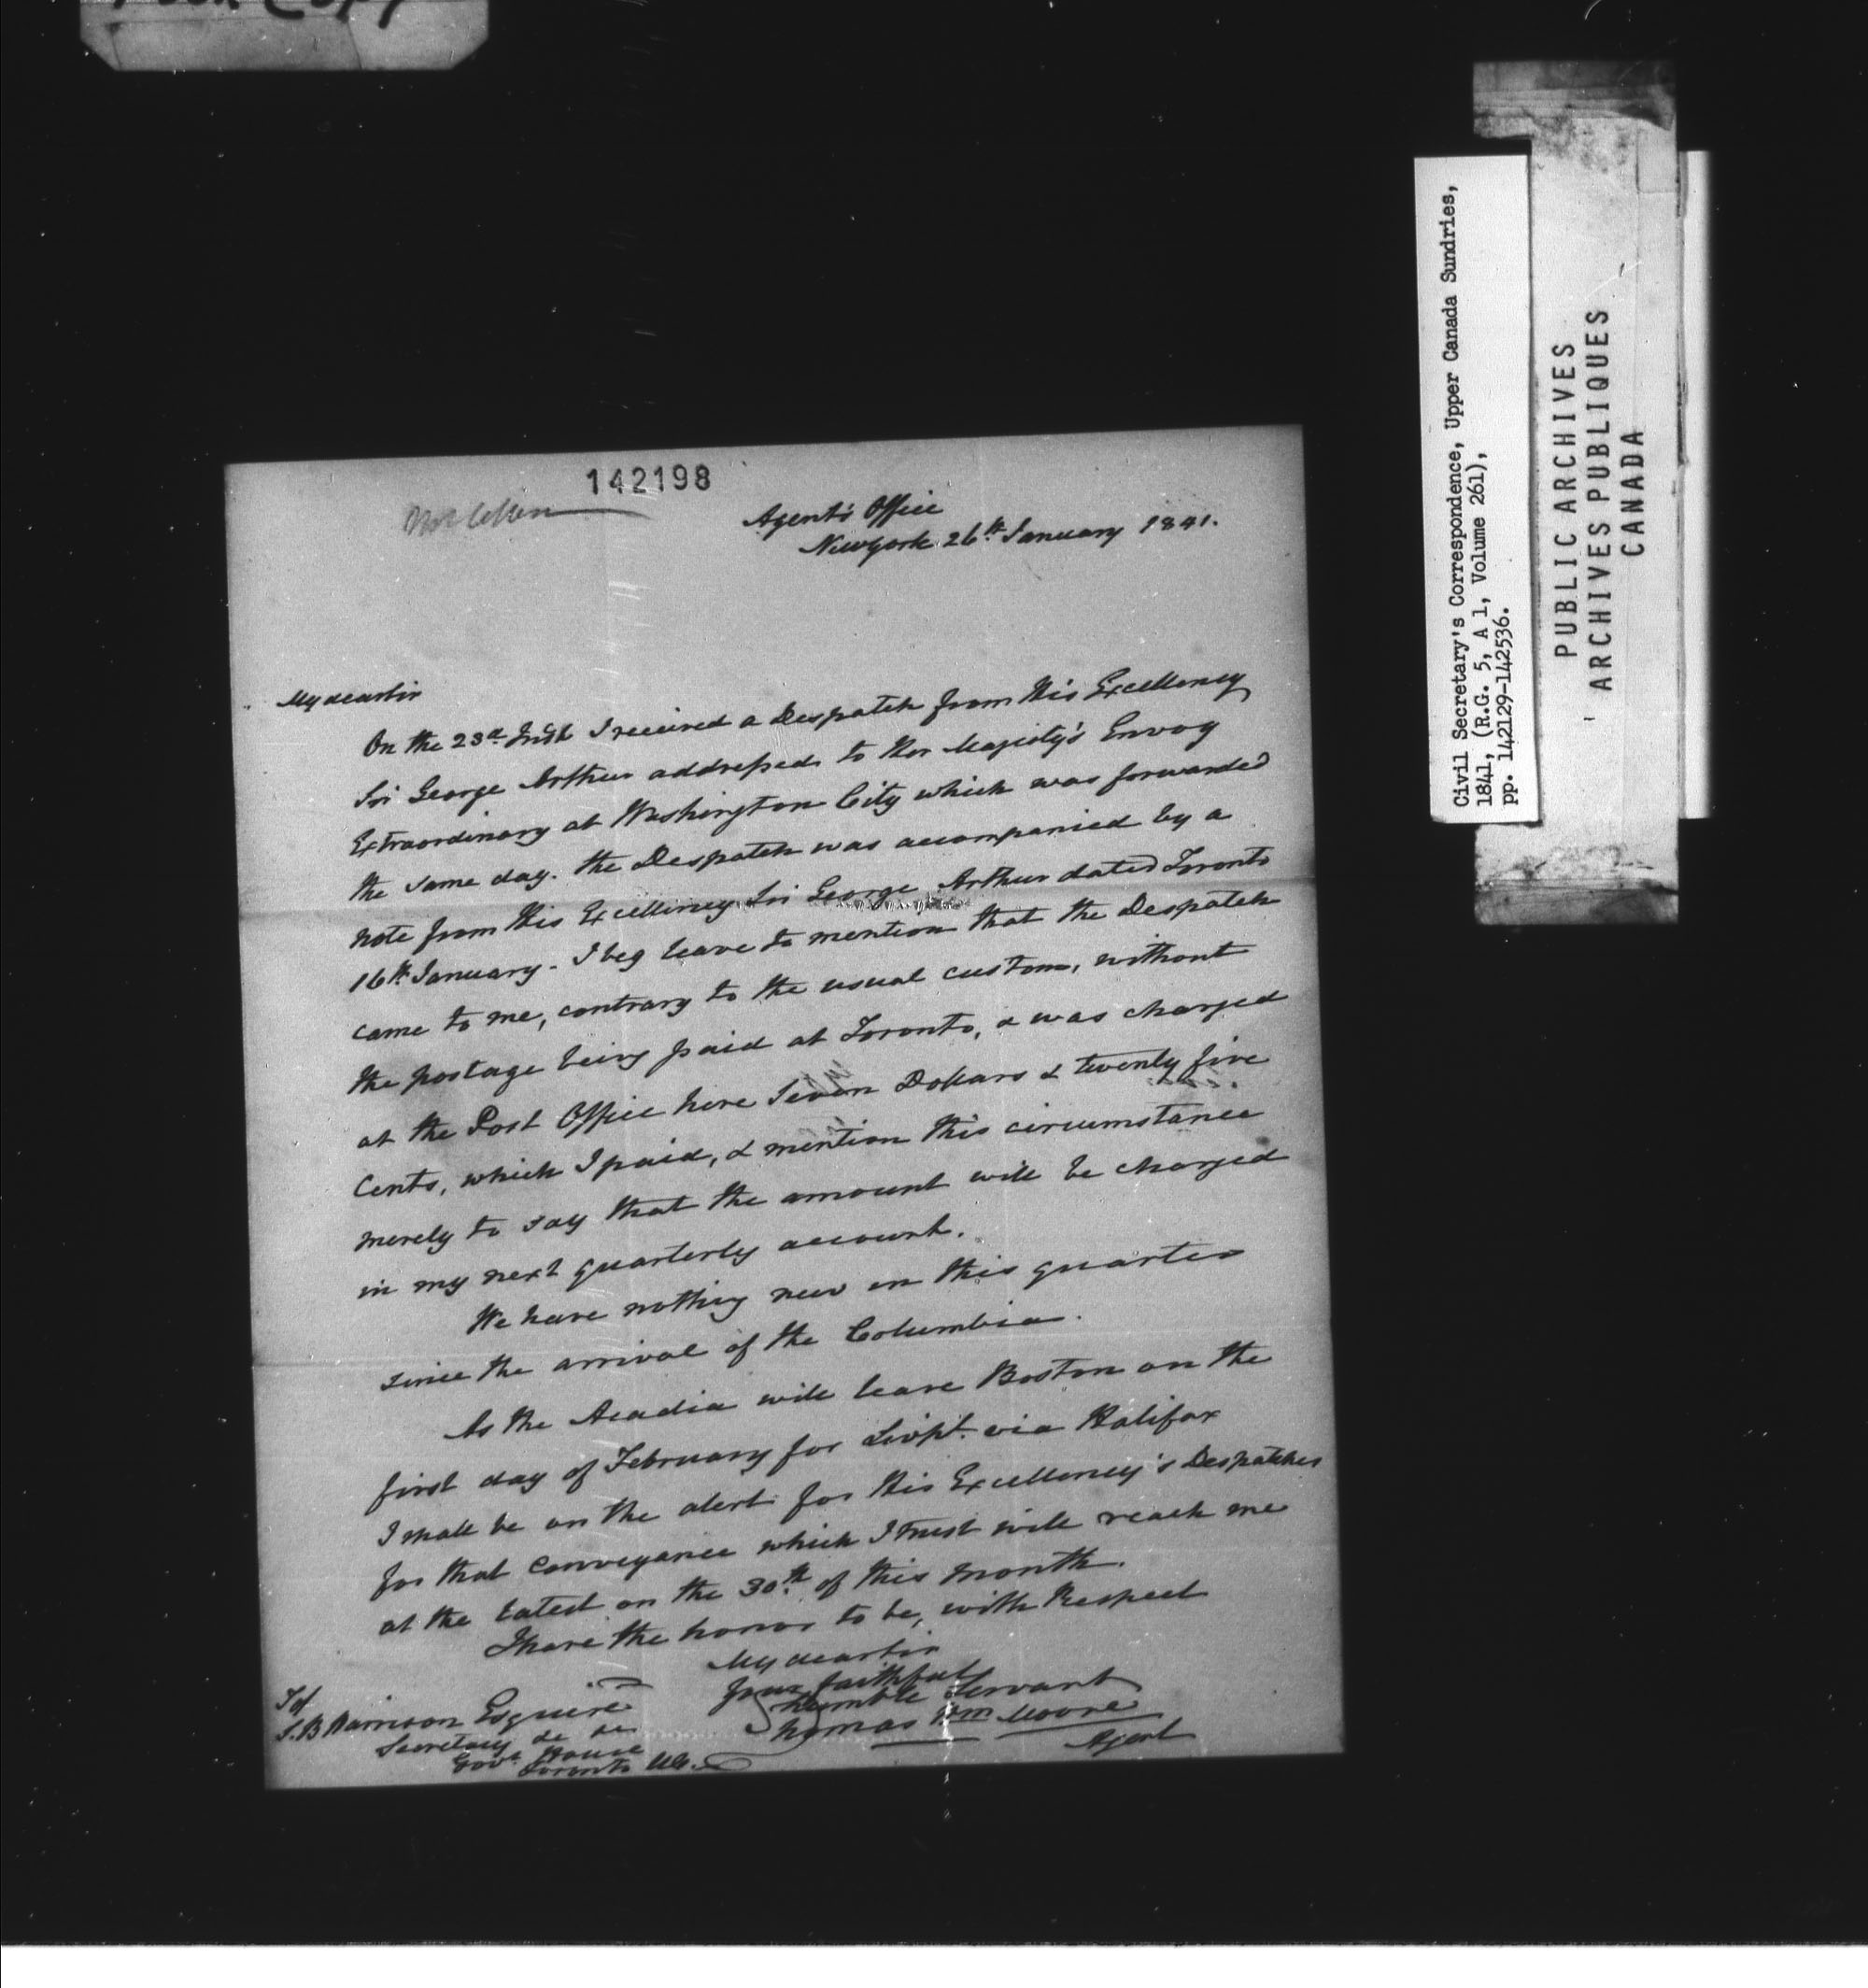 142198
Agent's Office
New york 26th January 1841.
My dear Sir
On the 23d Inst I received a Despatch from His Excellency
Sir George Arthur addressed to Her Majesty's Envoy
Extraordinary at Washington City which was forwarded
the same day. the Despatch was accompanied by a
note from His Excellency Sir George Arthur dated Toronto
16th January - I beg leave to mention that the Despatch
came to me, contrary to the usual custom, without
the postage being paid at Toronto, & was charged
at the Post Office here Seven Dollars & twenty five
Cents, which I paid, & mention this circumstance
merely to say that the amount will be charged
in my next quarterly account.
We have nothing new in this quarter
since the arrival of the Columbia.
As the Acadia will leave Boston on the
first day of February for Livpl. via Halifax
I shall be on the alert for His Excellency's Despatches
for that Conveyance which I trust will reach me
at the latest on the 30th of this month.
I have the honor to be, with Respect
My dear Sir
Your faithful
humble Servant
Thomas Wm Moore
Agent
To
S. B Harrison Esquire
Secretary &c &c
Govt House
Toronto UC.
Civil Secretary's Correspondence, Upper Canada Sundries,
1841, (R.G. 5, A 1, Volume 261),
pp. 142129-142536.
PUBLIC ARCHIVES
ARCHIVES PUBLIQUES
CANADA